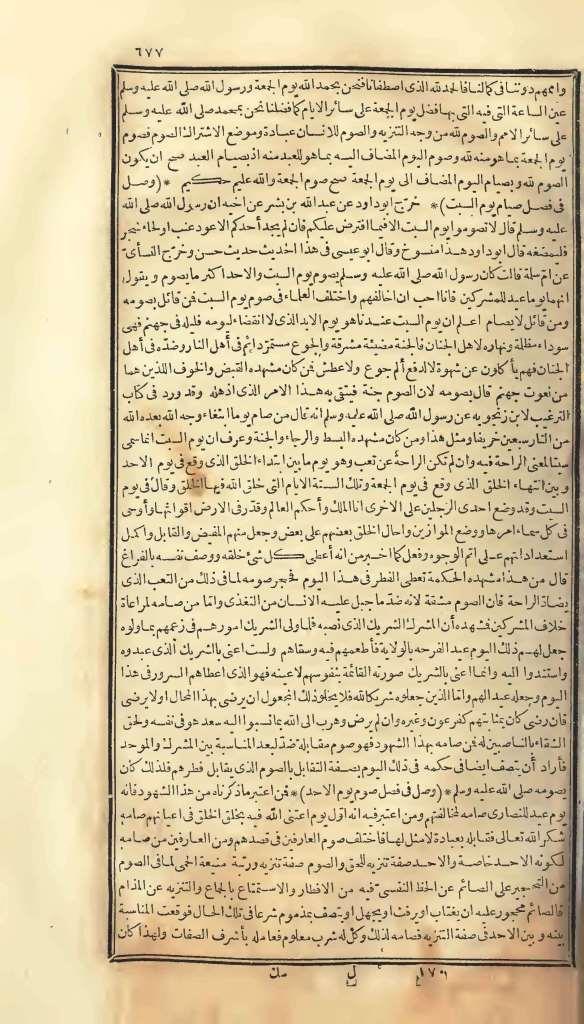 ٦٧٧
وامهم دوتنافي كمالنا فالحمد لله الذي اصطفانا فنحن بحمد الله يوم الجمعة ورسول الله صلى الله عليه وسلم
عين الساعة التي فيه التي بها فضل يوم الجمعة على سائر الايام كما فضلنا نحن بمحمد صلى الله عليه وسلم
على سائر الامم والصوم لله من وجه التنزيه والصوم للانسان عبادة وموضع الاشتراك الصوم فصوم
يوم الجمعة بما هو منه لله وصوم اليوم المضاف اليه بما هو للعبد منه اذ بصيام العبد صح ان يكون
الصوم لله وبصيام اليوم المضاف الى يوم الجمعة صح صوم الجمعة والله عليم حكيم * (وصل
في فصل صيام يوم السبت) * خرّج ابو داود عن عبد الله بن بشر عن اخيه ان رسول الله صلى الله
عليه وسلم قال لا تصوموا يوم السبت الا فيما افترض عليكم فان لم يجد أحدكم الا عود عنب او لحاء شجر
فليمضغه قال ابو داود هذا منسوخ وقال ابو عيسى في هذا الحديث حديث حسن وخرّج النسائي
عن امّ سلمة قالت كان رسول الله صلى الله عليه وسلم يصوم يوم السبت والاحد اكثر ما يصوم ويقول
انهما يوما عيد للمشركين فانا احب ان اخالفهم واختلف العلماء في صوم يوم السبت فمن قائل بصومه
ومن قائل لا يصام اعلم ان يوم السبت عندنا هو يوم الابد الذي لا انقضاء ليومه فليله في جهنم فهي
سوداء مظلمة ونهاره لاهل الجنان فالجنة مضيئة مشرقة والجوع مستمرّ دائم في أهل النار وضدّه في أهل
الجنان فهم يأكلون عن شهوة لا لدفع ألم جوع ولا عطش فمن كان مشهده القبض والخوف اللذين هما
من نعوت جهنم قال بصومه لان الصوم جنة فيتقى به هذا الامر الذي اذهله وقد ورد في كتاب
الترغيب لابن زنجويه عن رسول الله صلى الله عليه وسلم انه قال من صام يوما ابتغاء وجه الله بعده الله
من النار سبعين خريفا ومثل هذا ومن كان مشهده البسط والرجاء والجنة وعرف ان يوم السبت انما سمى
سبتا لمعنى الراحة فيه وان لم تكن الراحة عن تعب وهو يوم ما بين ابتداء الخلق الذي وقع في يوم الاحد
وبين انتهاء الخلق الذي وقع في يوم الجمعة وتلك الستة الايام التي خلق الله فيها الخلق وقال في يوم
السبت وقد وضع احدى الرجلين على الاخرى انا الملك وأحكم العالم وقدّر في الارض اقواتها وأوحى
في كل سماء امرها ووضع الموازين واحال الخلق بعضهم على بعض وجعل منهم المفيض والقابل واكمل
استعداداتهم على اتم الوجوه وفعل كما اخبر من انه أعطى كل شئ خلقه ووصف نفسه بالفراغ
قال من هذا مشهده الحكمة تعطى الفطر في هذا اليوم صومه لما في ذلك من التعب الذي
يضادّ الراحة فان الصوم مشقة لانه ضدّ ما جبل عليه الانسان من التغذي وامّا من صامه لمراعاة
خلاف المشركين فشهده أن المشرك الشريك الذي نصبه فلما ولى الشريك امورهم في زعمهم بما ولوه
جعل لهم ذلك اليوم عيد الفرحه بالولاية فأطعمهم فيه وسقاهم ولست اعنى بالشريك الذي عبدوه
واستندوا اليه وانما اعنى بالشريك صورته القائمة بنفوسهم لا عينه فهو الذي اعطاهم السرور في هذا
اليوم وجعله عيدا لهم وامّا الذين جعلوه شريكا لله فلا يخلو ذلك المجعول ان يرضى بهذا المحال اولا يرضى
فان رضى كان بمثابتهم كفرعون وغيره وان لم يرض وهرب الى الله مما نسبوا اليه سعد هو في نفسه ولحق
الشقاء بالناصبين له فمن صامه بهذا الشهود فهو صوم مقابلة ضدّ لبعد المناسبة بين المشرك والموحد
فأراد أن يتصف ايضا في حكمه في ذلك اليوم بصفة التقابل بالصوم الذي يقابل فطرهم فلذلك كان
بصومه صلى الله عليه وسلم * (وصل في فصل صوم يوم الاحد) * فمن اعتبر ما ذكرناه من هذا الشهود فانه
يوم عيد للنصارى صامه لمخالفتهم ومن اعتبر فيه انه اول يوم اعتنى الله فيه بخلق الخلق في اعيانهم صامه
شكر الله تعالى فقابله بعبادة لا مثل لها فاختلف صوم العارفين في قصدهم ومن العارفين من صامه
لكونه الاحد خاصة والاحد صفة تنزيه للحق والصوم صفة تنزيه ورتبة منيعة الحمى لما في الصوم
من التحجير على الصائم عن الحظ النفسي فيه من الافطار والاستمتاع بالجماع والتنزيه عن المذام
فالصائم محجور عليه ان يغتاب او يرفث او يجهل او يتصف بمذموم شرعا في تلك الحال فوقعت المناسبة
بينه وبين الاحد في صفة التنزيه فصامه لذلك وكل له شرب معلوم فعامله بأشرف الصفات ولهذا كان
١٧٠ ل مك